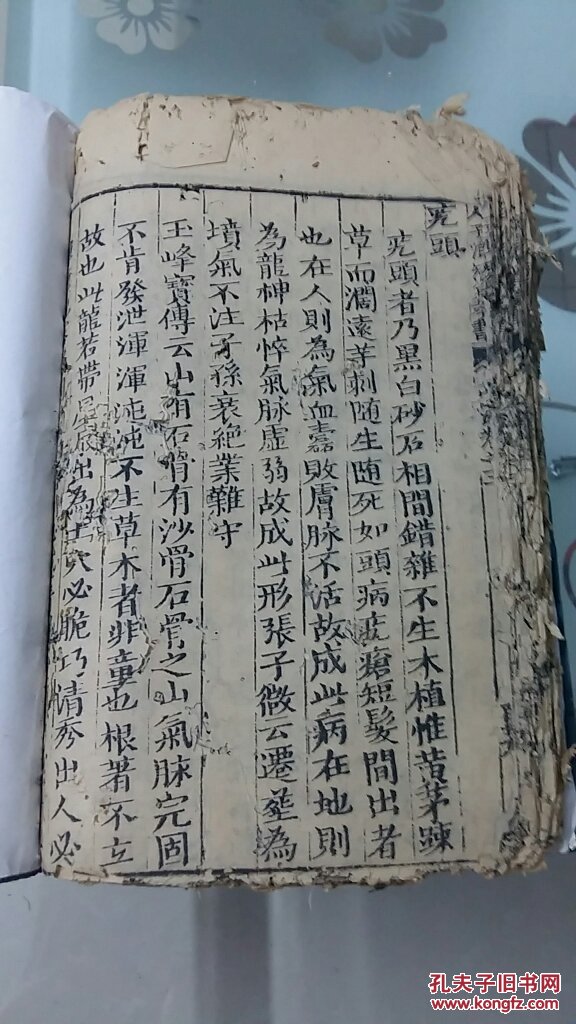 疙頭
疙頭者乃黒白砂石相間錯雜不生木植惟苦茅踈
草而濶遠芊刺随生随死如頭病疙瘡短髮間出者
也在人則為氣血蠹敗膚脉不活故成此病在地則
為龍神枯悴氣脉虚弱故成此形張子微云遷塟為
墳氣不注子孫衰絶業難守
玉峰寳傳云山有石骨有沙骨石骨之山氣脉完固
不肯發泄渾渾沌沌不生草木者非童也根著不立
故也此龍若帶星辰出為吉穴必脆巧清秀出人必
孔夫子旧书网
www.kongfz.com